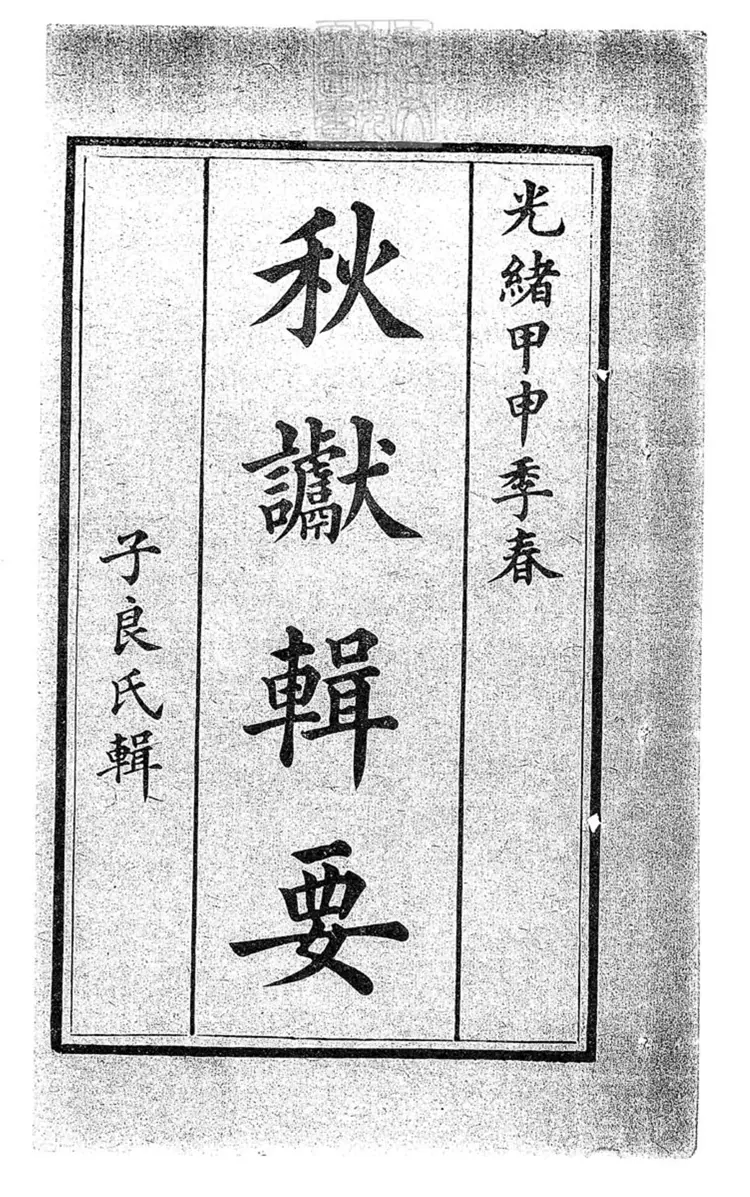 光緒甲申季春
秋讞輯要
子良氏輯